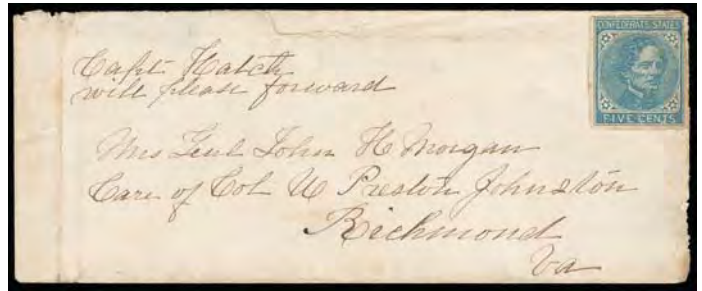 CONFEDERATE STATES
FIVE CENTS
Capt Hatch
will please forward
Mrs Genl John H Morgan
Care of Col W Preston Johnston
Richmond
Va